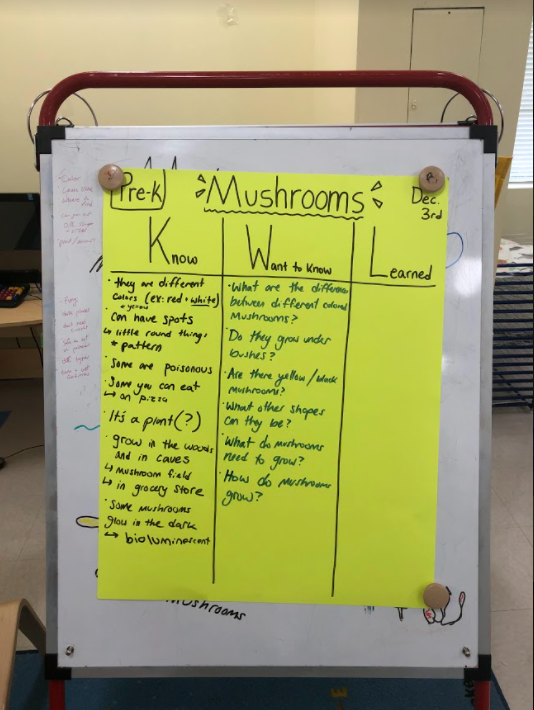 Pre-K
Mushrooms
Dec.
3rd
Know
• they are different
colors (ex: red + white)
+ yellow
• can have spots
↳ little round things
* pattern
• Some are poisonous
• Some you can eat
↳ on pizza
• It's a plant(?)
• grow in the woods
and in caves
↳ mushroom field
↳ in grocery store
• Some mushrooms
glow in the dark
↳ bioluminescent
Want to Know
• What are the difference
between different colored
Mushrooms?
• Do they grow under
bushes?
• Are there yellow/black
mushrooms?
• What other shapes
can they be?
• What do mushrooms
need to grow?
• How do mushrooms
grow?
Learned
Mushrooms